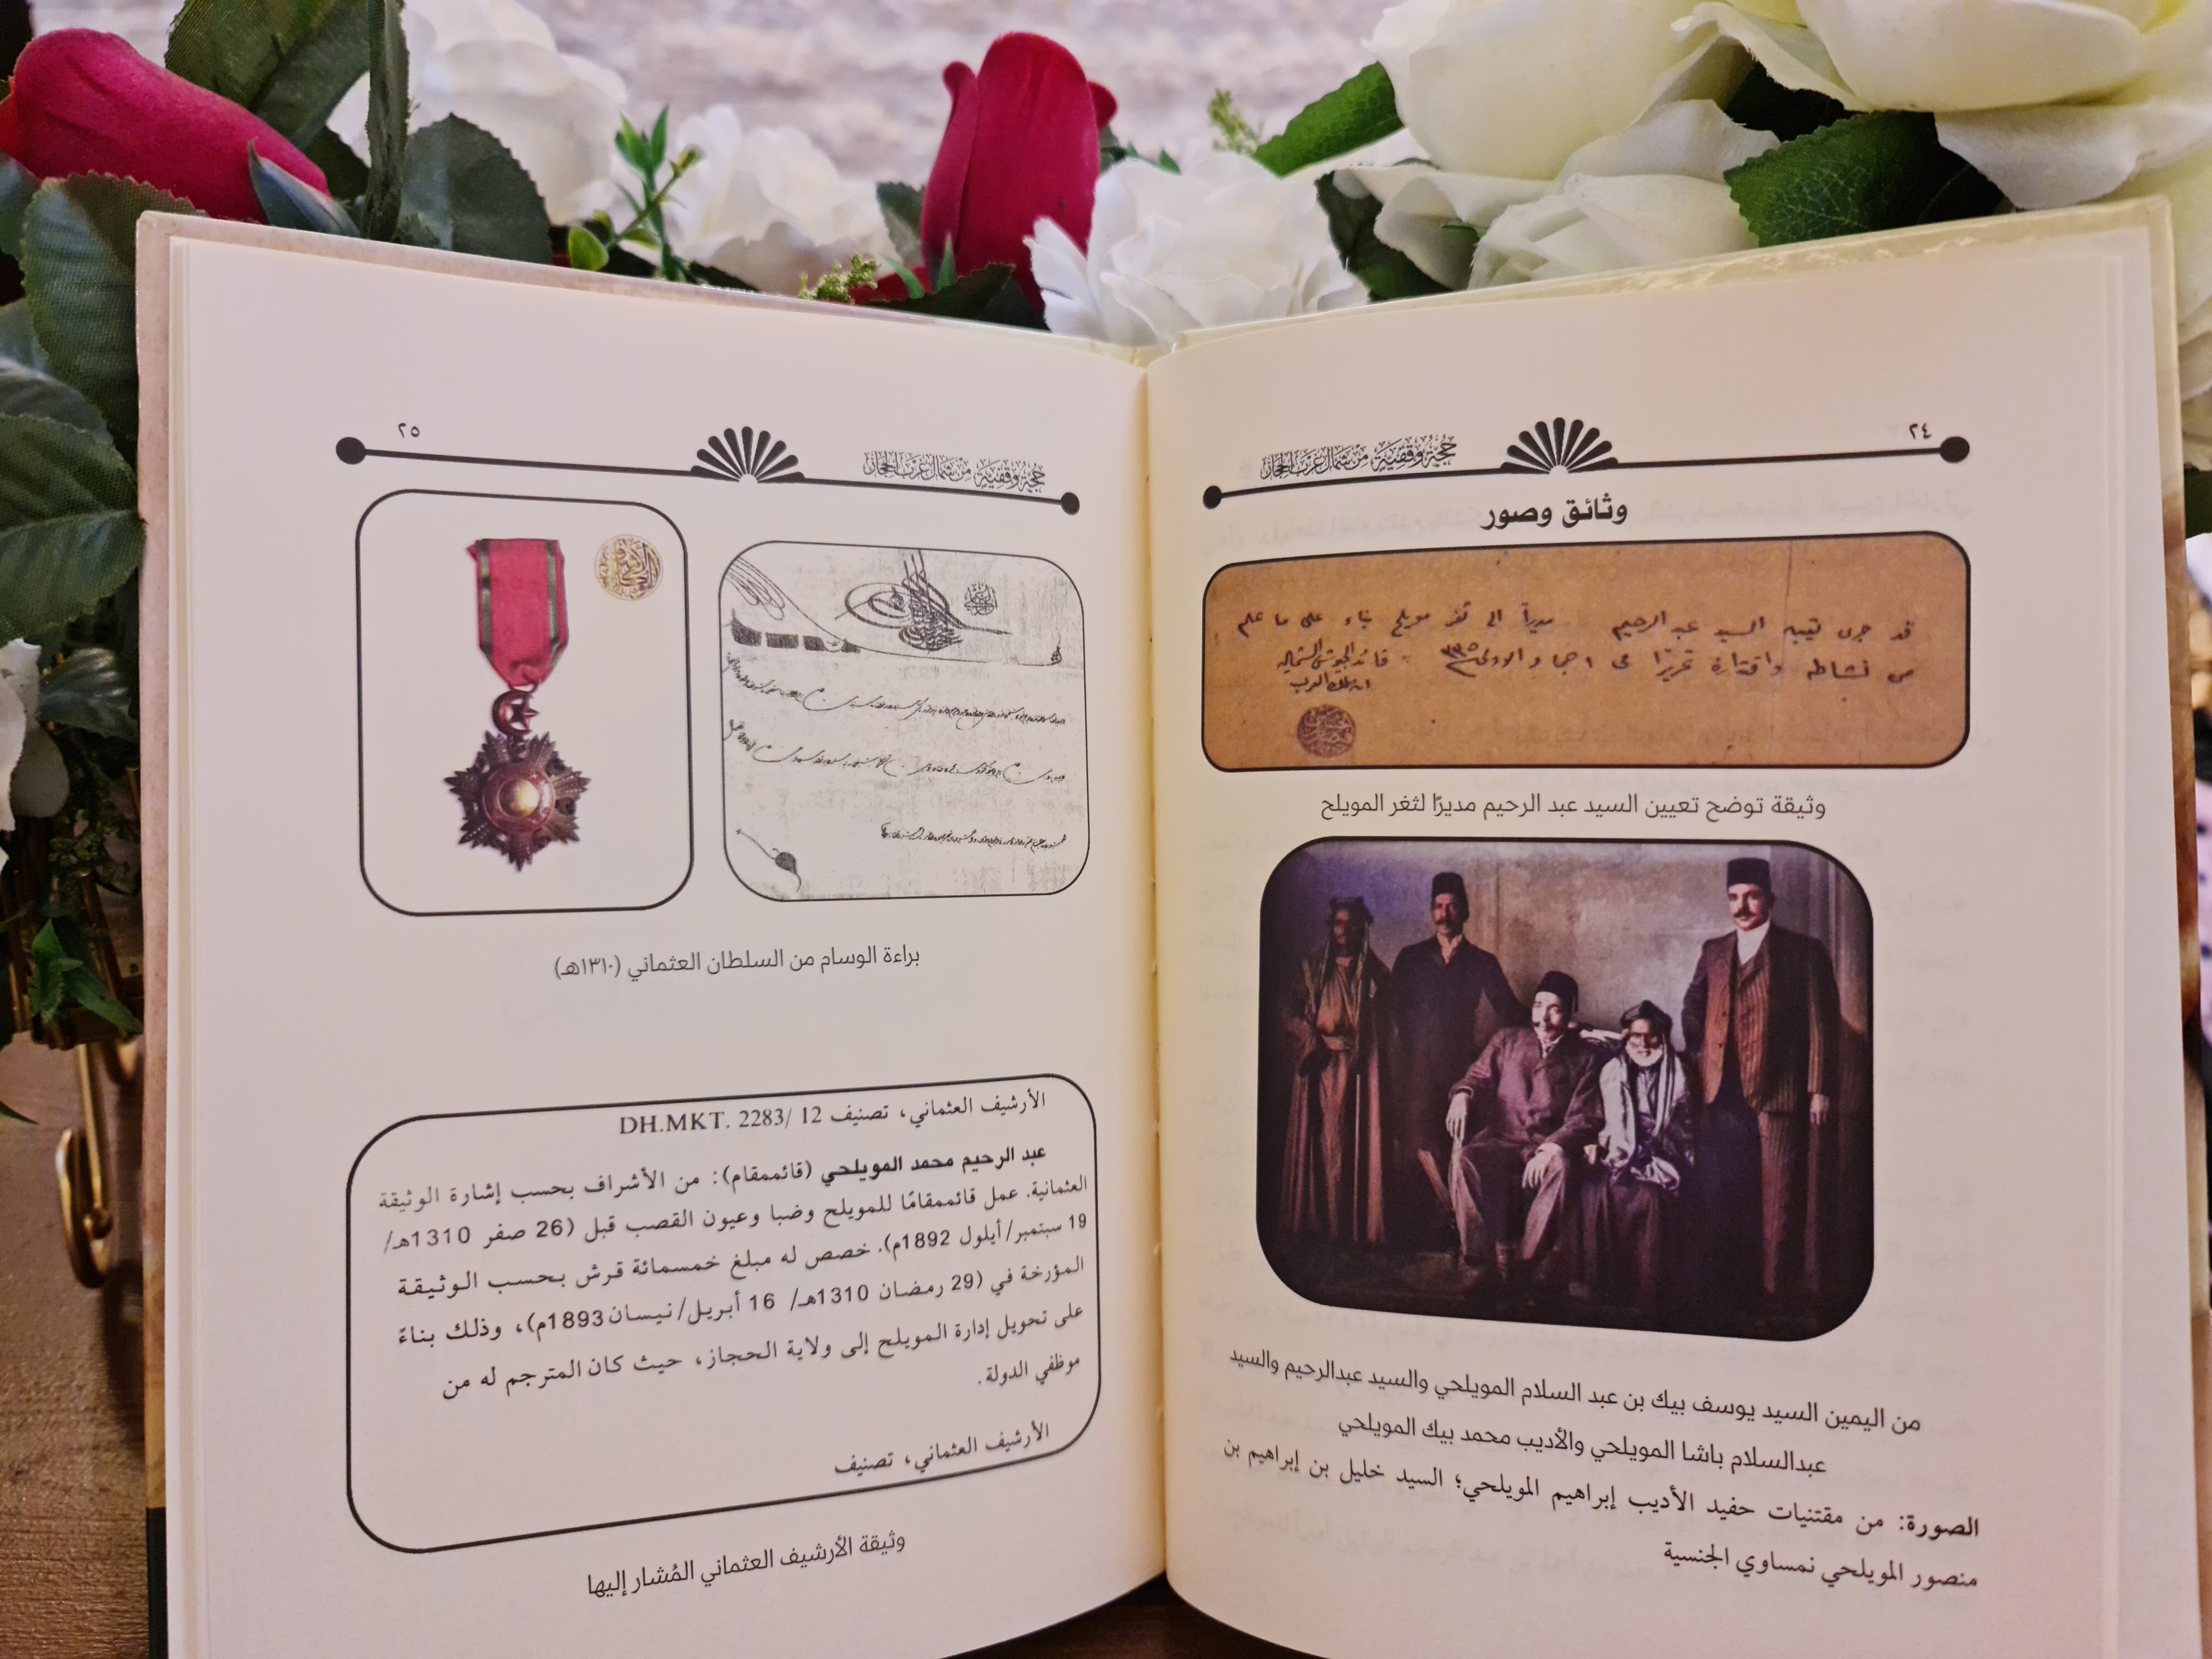 ٢٤
حجة وقفية من شمال غرب الحجاز
وثائق وصور
قد جرى تعيين السيد عبد الرحيم مديراً الى ثغر مويلح بناء على ما علم
من نشاطه واقتداره تحريرًا فى ١ جماد الاولى ١٣٣٥ قائد الجيوش الشماليه
ابن ملك العرب
وثيقة توضح تعيين السيد عبد الرحيم مديرًا لثغر المويلح
من اليمين السيد يوسف بيك بن عبد السلام المويلحي والسيد عبدالرحيم والسيد
عبدالسلام باشا المويلحي والأديب محمد بيك المويلحي
الصورة: من مقتنيات حفيد الأديب إبراهيم المويلحي؛ السيد خليل بن إبراهيم بن
منصور المويلحي نمساوي الجنسية
٢٥
حجة وقفية من شمال غرب الحجاز
براءة الوسام من السلطان العثماني (١٣١٠هـ)
الأرشيف العثماني، تصنيف DH.MKT. 2283/ 12
عبد الرحيم محمد المويلحي (قائممقام): من الأشراف بحسب إشارة الوثيقة
العثمانية. عمل قائممقامًا للمويلح وضبا وعيون القصب قبل (26 صفر 1310هـ/
19 سبتمبر/أيلول 1892م). خصص له مبلغ خمسمائة قرش بحسب الوثيقة
المؤرخة في (29 رمضان 1310هـ/ 16 أبريل/نيسان 1893م)، وذلك بناءً
على تحويل إدارة المويلح إلى ولاية الحجاز، حيث كان المترجم له من
موظفي الدولة.
الأرشيف العثماني، تصنيف
وثيقة الأرشيف العثماني المُشار إليها